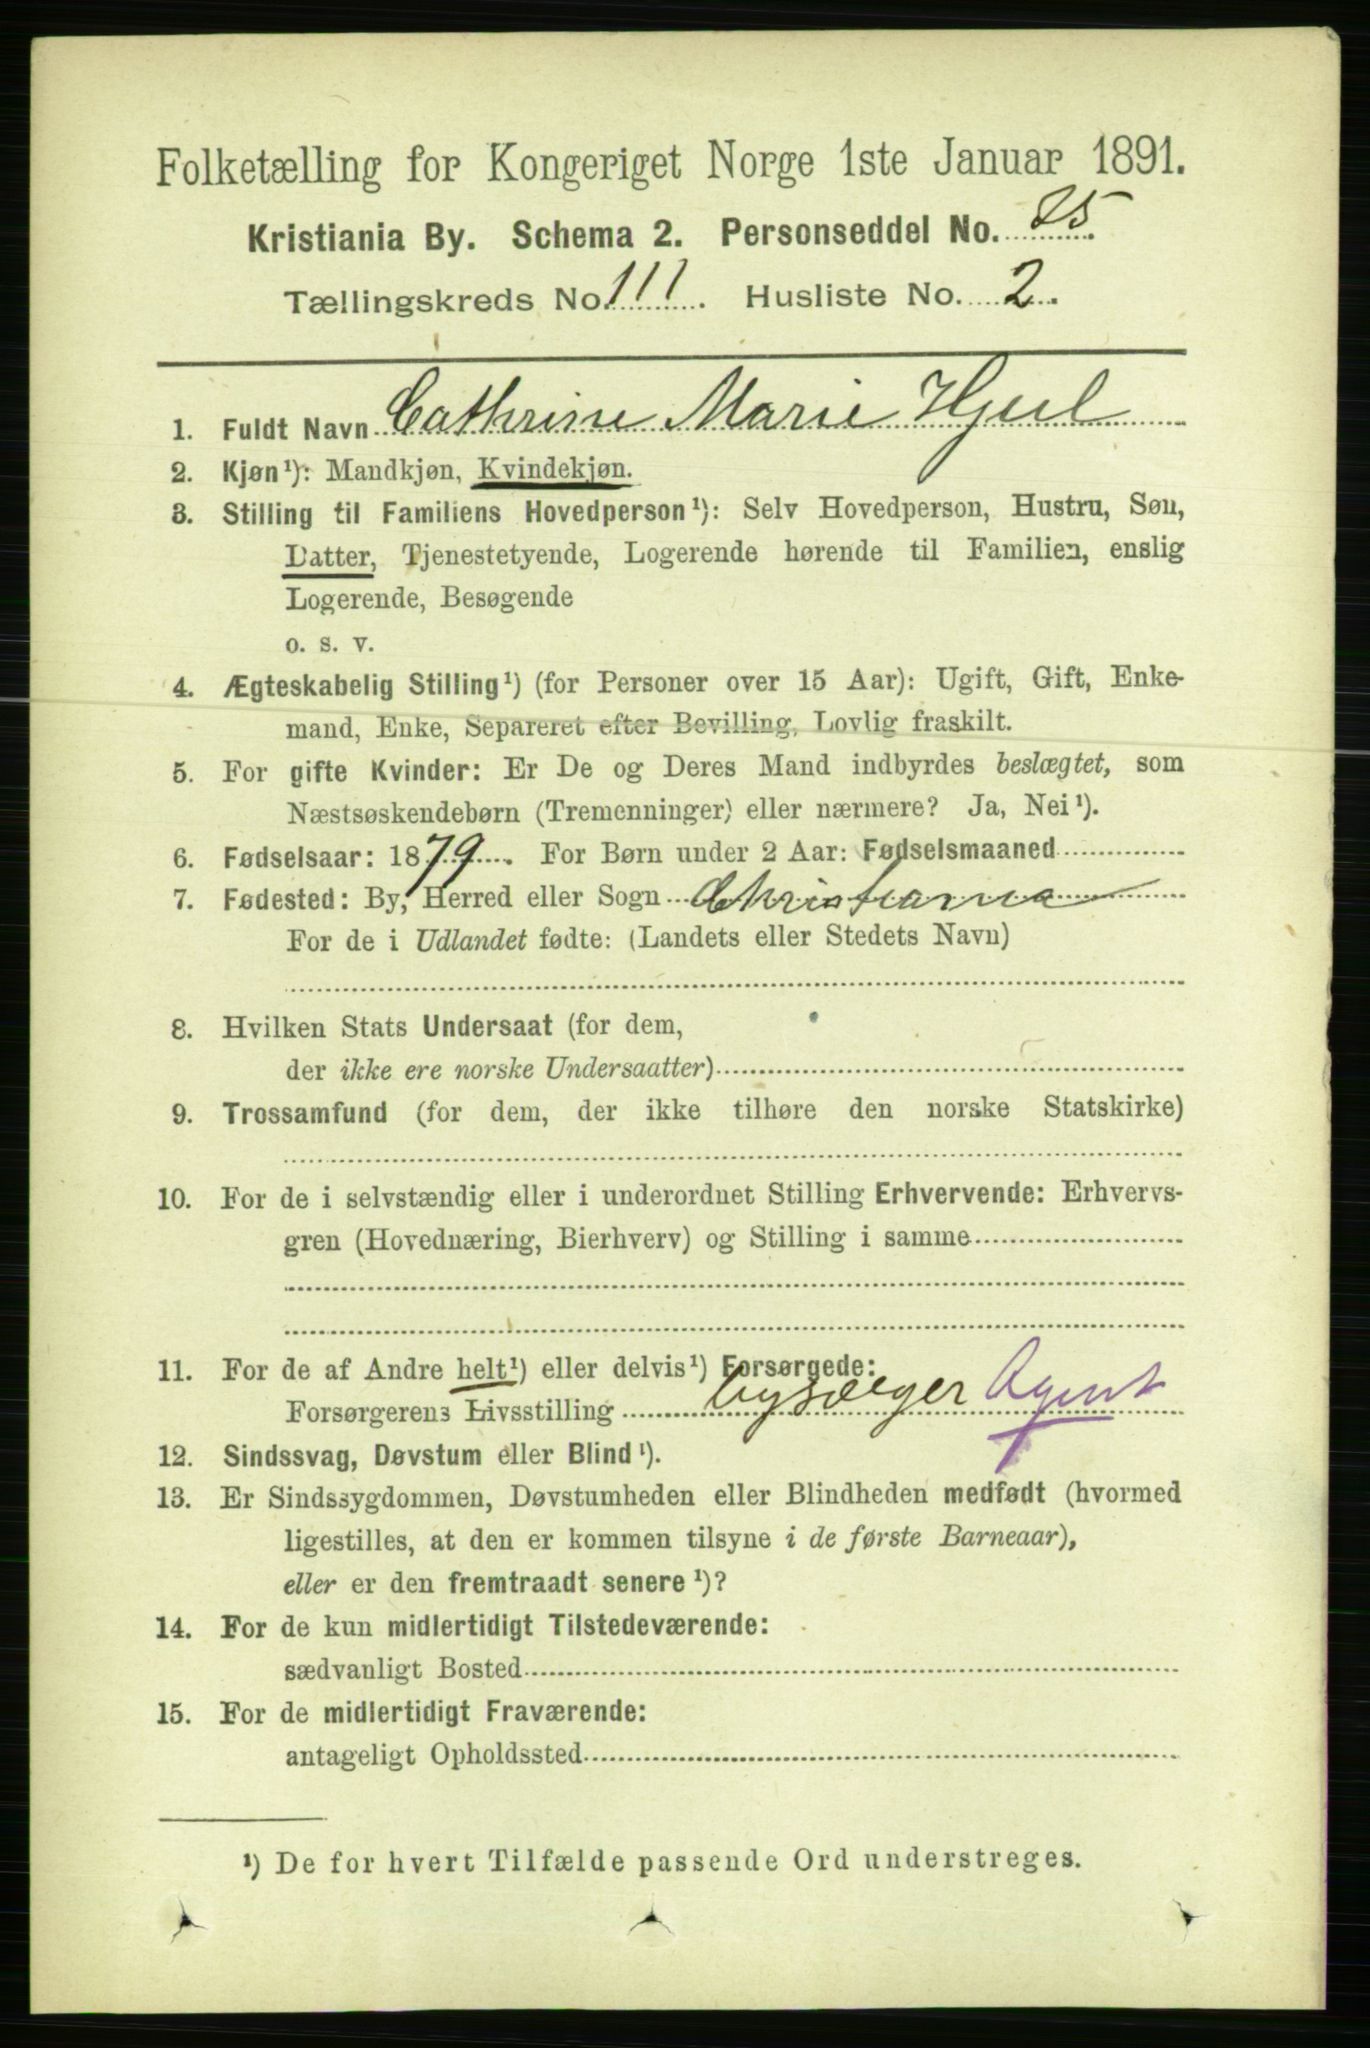 Folketælling for Kongeriget Norge 1ste Januar 1891.
Kristiania By. Schema 2. Personseddel No. 25.
Tællingskreds No. 111. Husliste No. 2.
1. Fuldt Navn Cathrine Marie Hjul
2. Kjøn¹): Mandkjøn, Kvindekjøn.
3. Stilling til Familiens Hovedperson¹): Selv Hovedperson, Hustru, Søn,
Datter, Tjenestetyende, Logerende hørende til Familien, enslig
Logerende, Besøgende
o. s. v.
4. Ægteskabelig Stilling¹) (for Personer over 15 Aar): Ugift, Gift, Enke-
mand, Enke, Separeret efter Bevilling, Lovlig fraskilt.
5. For gifte Kvinder: Er De og Deres Mand indbyrdes beslægtet, som
Næstsøskendebørn (Tremenninger) eller nærmere? Ja, Nei¹).
6. Fødselsaar: 1879. For Børn under 2 Aar: Fødselsmaaned
7. Fødested: By, Herred eller Sogn Christiania
For de i Udlandet fødte: (Landets eller Stedets Navn)
8. Hvilken Stats Undersaat (for dem,
der ikke ere norske Undersaatter)
9. Trossamfund (for dem, der ikke tilhøre den norske Statskirke)
10. For de i selvstændig eller i underordnet Stilling Erhvervende: Erhvervs-
gren (Hovednæring, Bierhverv) og Stilling i samme
11. For de af Andre helt¹) eller delvis¹) Forsørgede:
Forsørgerens Livsstilling Agent
12. Sindssvag, Døvstum eller Blind¹).
13. Er Sindssygdommen, Døvstumheden eller Blindheden medfødt (hvormed
ligestilles, at den er kommen tilsyne i de første Barneaar),
eller er den fremtraadt senere¹)?
14. For de kun midlertidigt Tilstedeværende:
sædvanligt Bosted
15. For de midlertidigt Fraværende:
antageligt Opholdssted
¹) De for hvert Tilfælde passende Ord understreges.